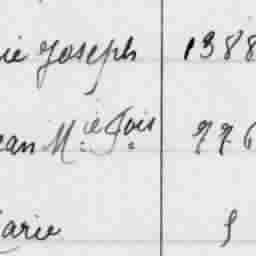 ie Joseph 1388
ean M.ie F.ois 776
arie